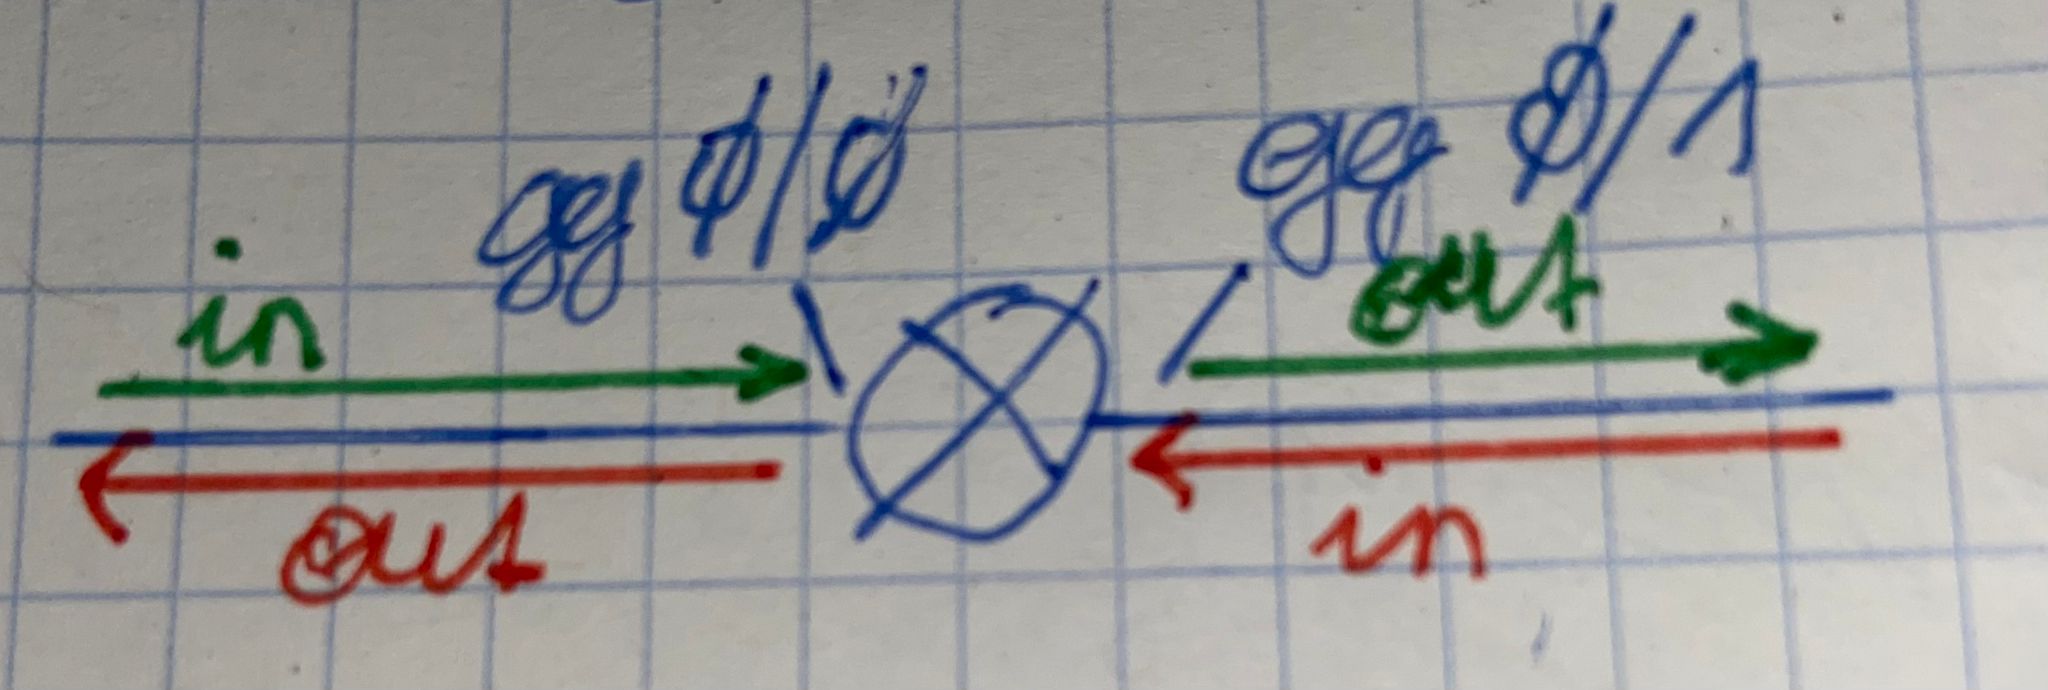 gg 0/0
gg 0/1
in
out
out
in